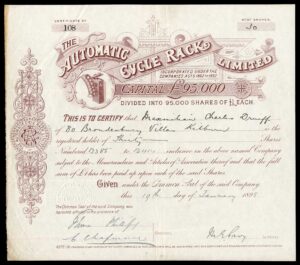 CERTIFICATE Nº
108
30
THE
AUTOMATIC
CYCLE RACKS
LIMITED
INCORPORATED UNDER THE
COMPANIES ACTS 1862 TO 1890
CAPITAL £95,000
DIVIDED INTO 95,000 SHARES OF £1 EACH
THIS IS TO CERTIFY that Maximilian Charles
of 80 Brondesbury Villas Kilburn is the
registered holder of Thirty Shares
Numbered to inclusive in the above named Company
subject to the Memorandum and Articles of Association thereof and that the full
sum of £1 has been paid up upon each of the said Shares.
Given under the Common Seal of the said Company
this 19th day of January 1898
The Common Seal of the said Company was